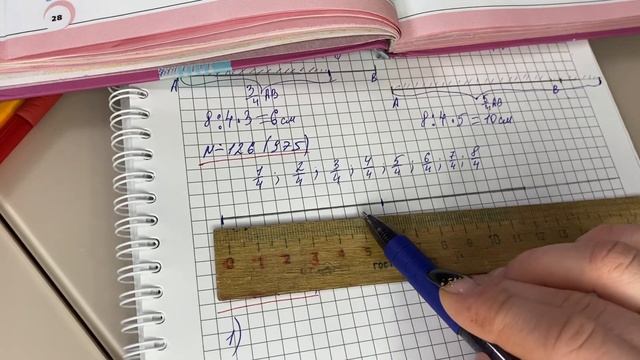 28
A 3/4 AB B
A 5/4 AB B
8:4·3=6см
8:4·5=10см
N=126 (975)
1/4; 2/4; 3/4; 4/4; 5/4; 6/4; 7/4; 8/4
0 1 2 3 8 9 10 11 12 13
ГОСТ
1)